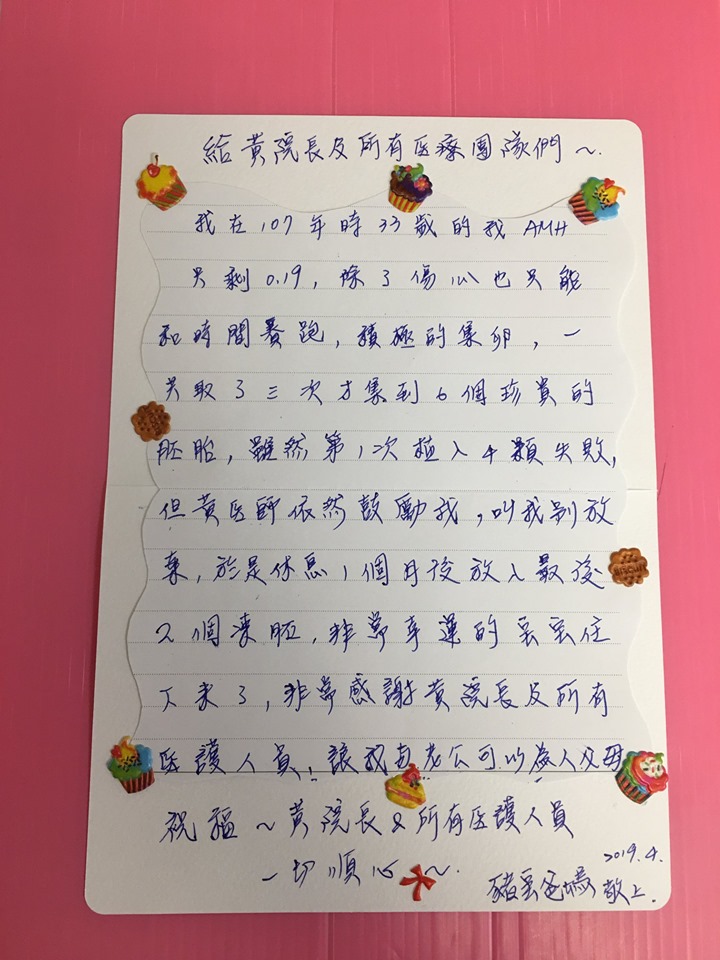 給黃院長及所有医療團隊們～.
我在107年時33歲的我 AMH
只剩0.19，除了傷心也只能
和時間賽跑，積極的集卵，一
共取了三次才集到6個珍貴的
胚胎，雖然第1次植入4顆失敗，
但黃医師依然鼓勵我，叫我別放
棄，於是休息1個月後放入最後
2個凍胚，非常幸運的寶寶住
下來了，非常感謝黃院長及所有
医護人員，讓我与老公可以為人父母
祝福～黃院長&所有医護人員
一切順心～
2019.4.
豬寶爸媽 敬上.
BISCUIT